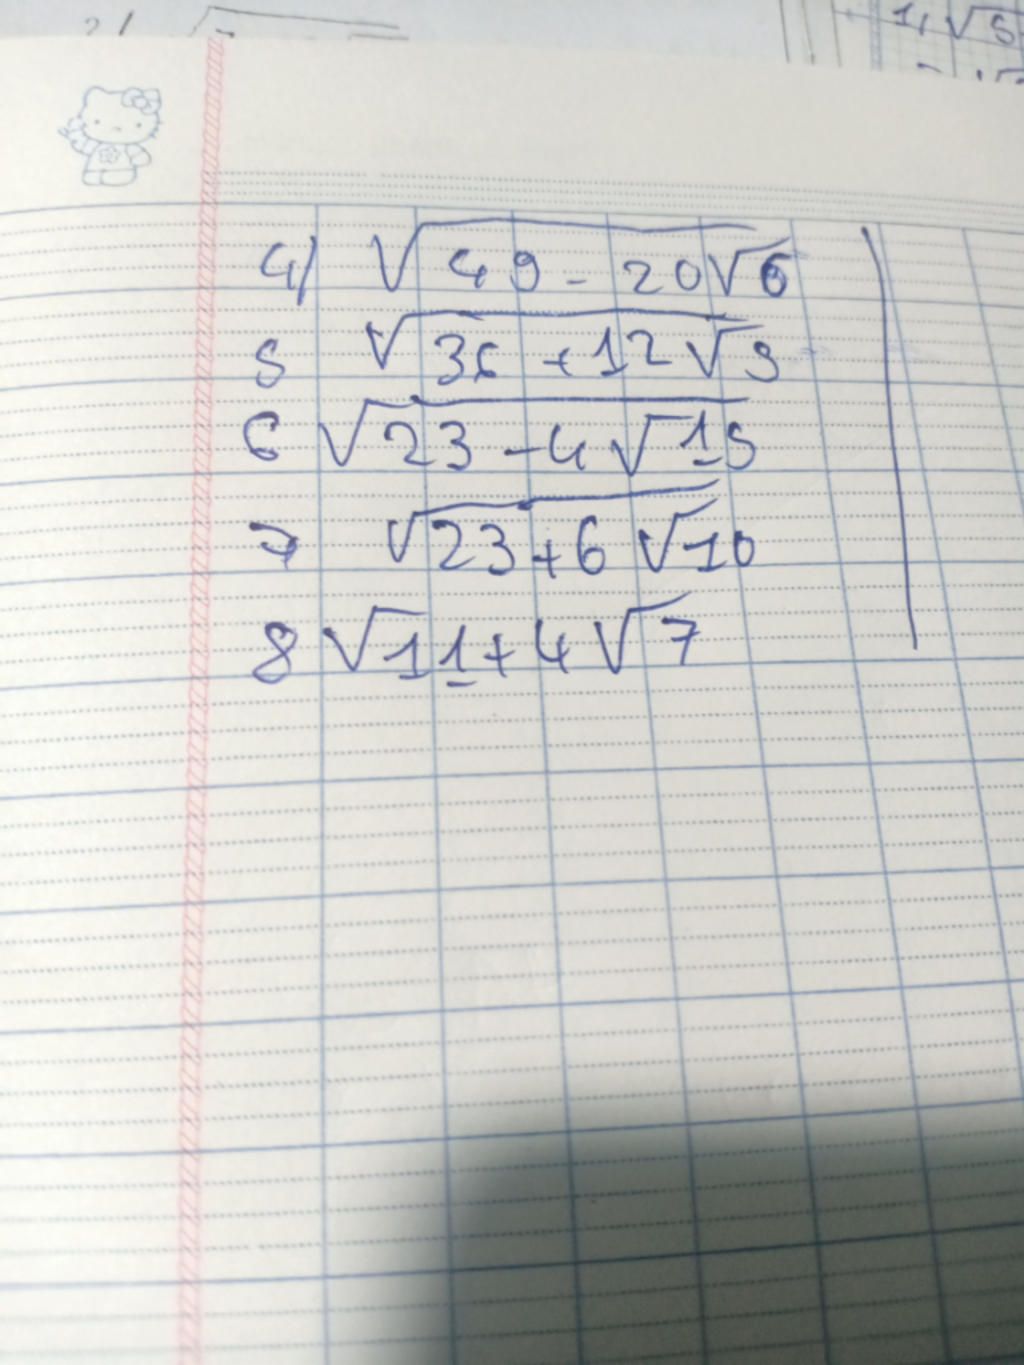 2/ √
1, √5
4/ √49-20√6
5 √36+12√5
6 √23-4√15
7 √23+6√10
8 √11+4√7